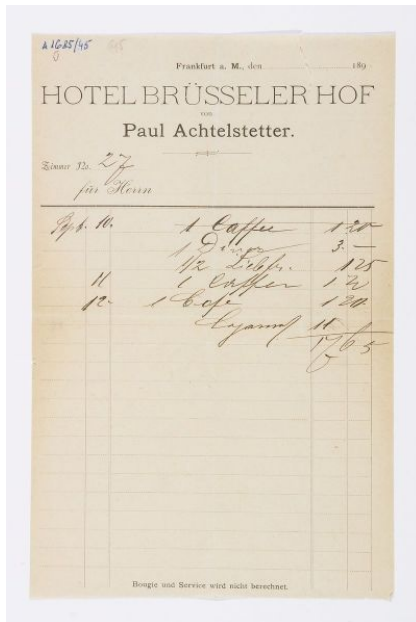 A 1685/45
Frankfurt a. M., den 189
HOTEL BRÜSSELER HOF
von
Paul Achtelstetter.
Zimmer No. 27
für Herrn
Sept. 10. 1 Caffee 1 20
1 Diner 3. —
1/2 Liebfr. 1 25
11 1 Caffee 1 20
12. 1 Cafe 1 20
Bougie und Service wird nicht berechnet.